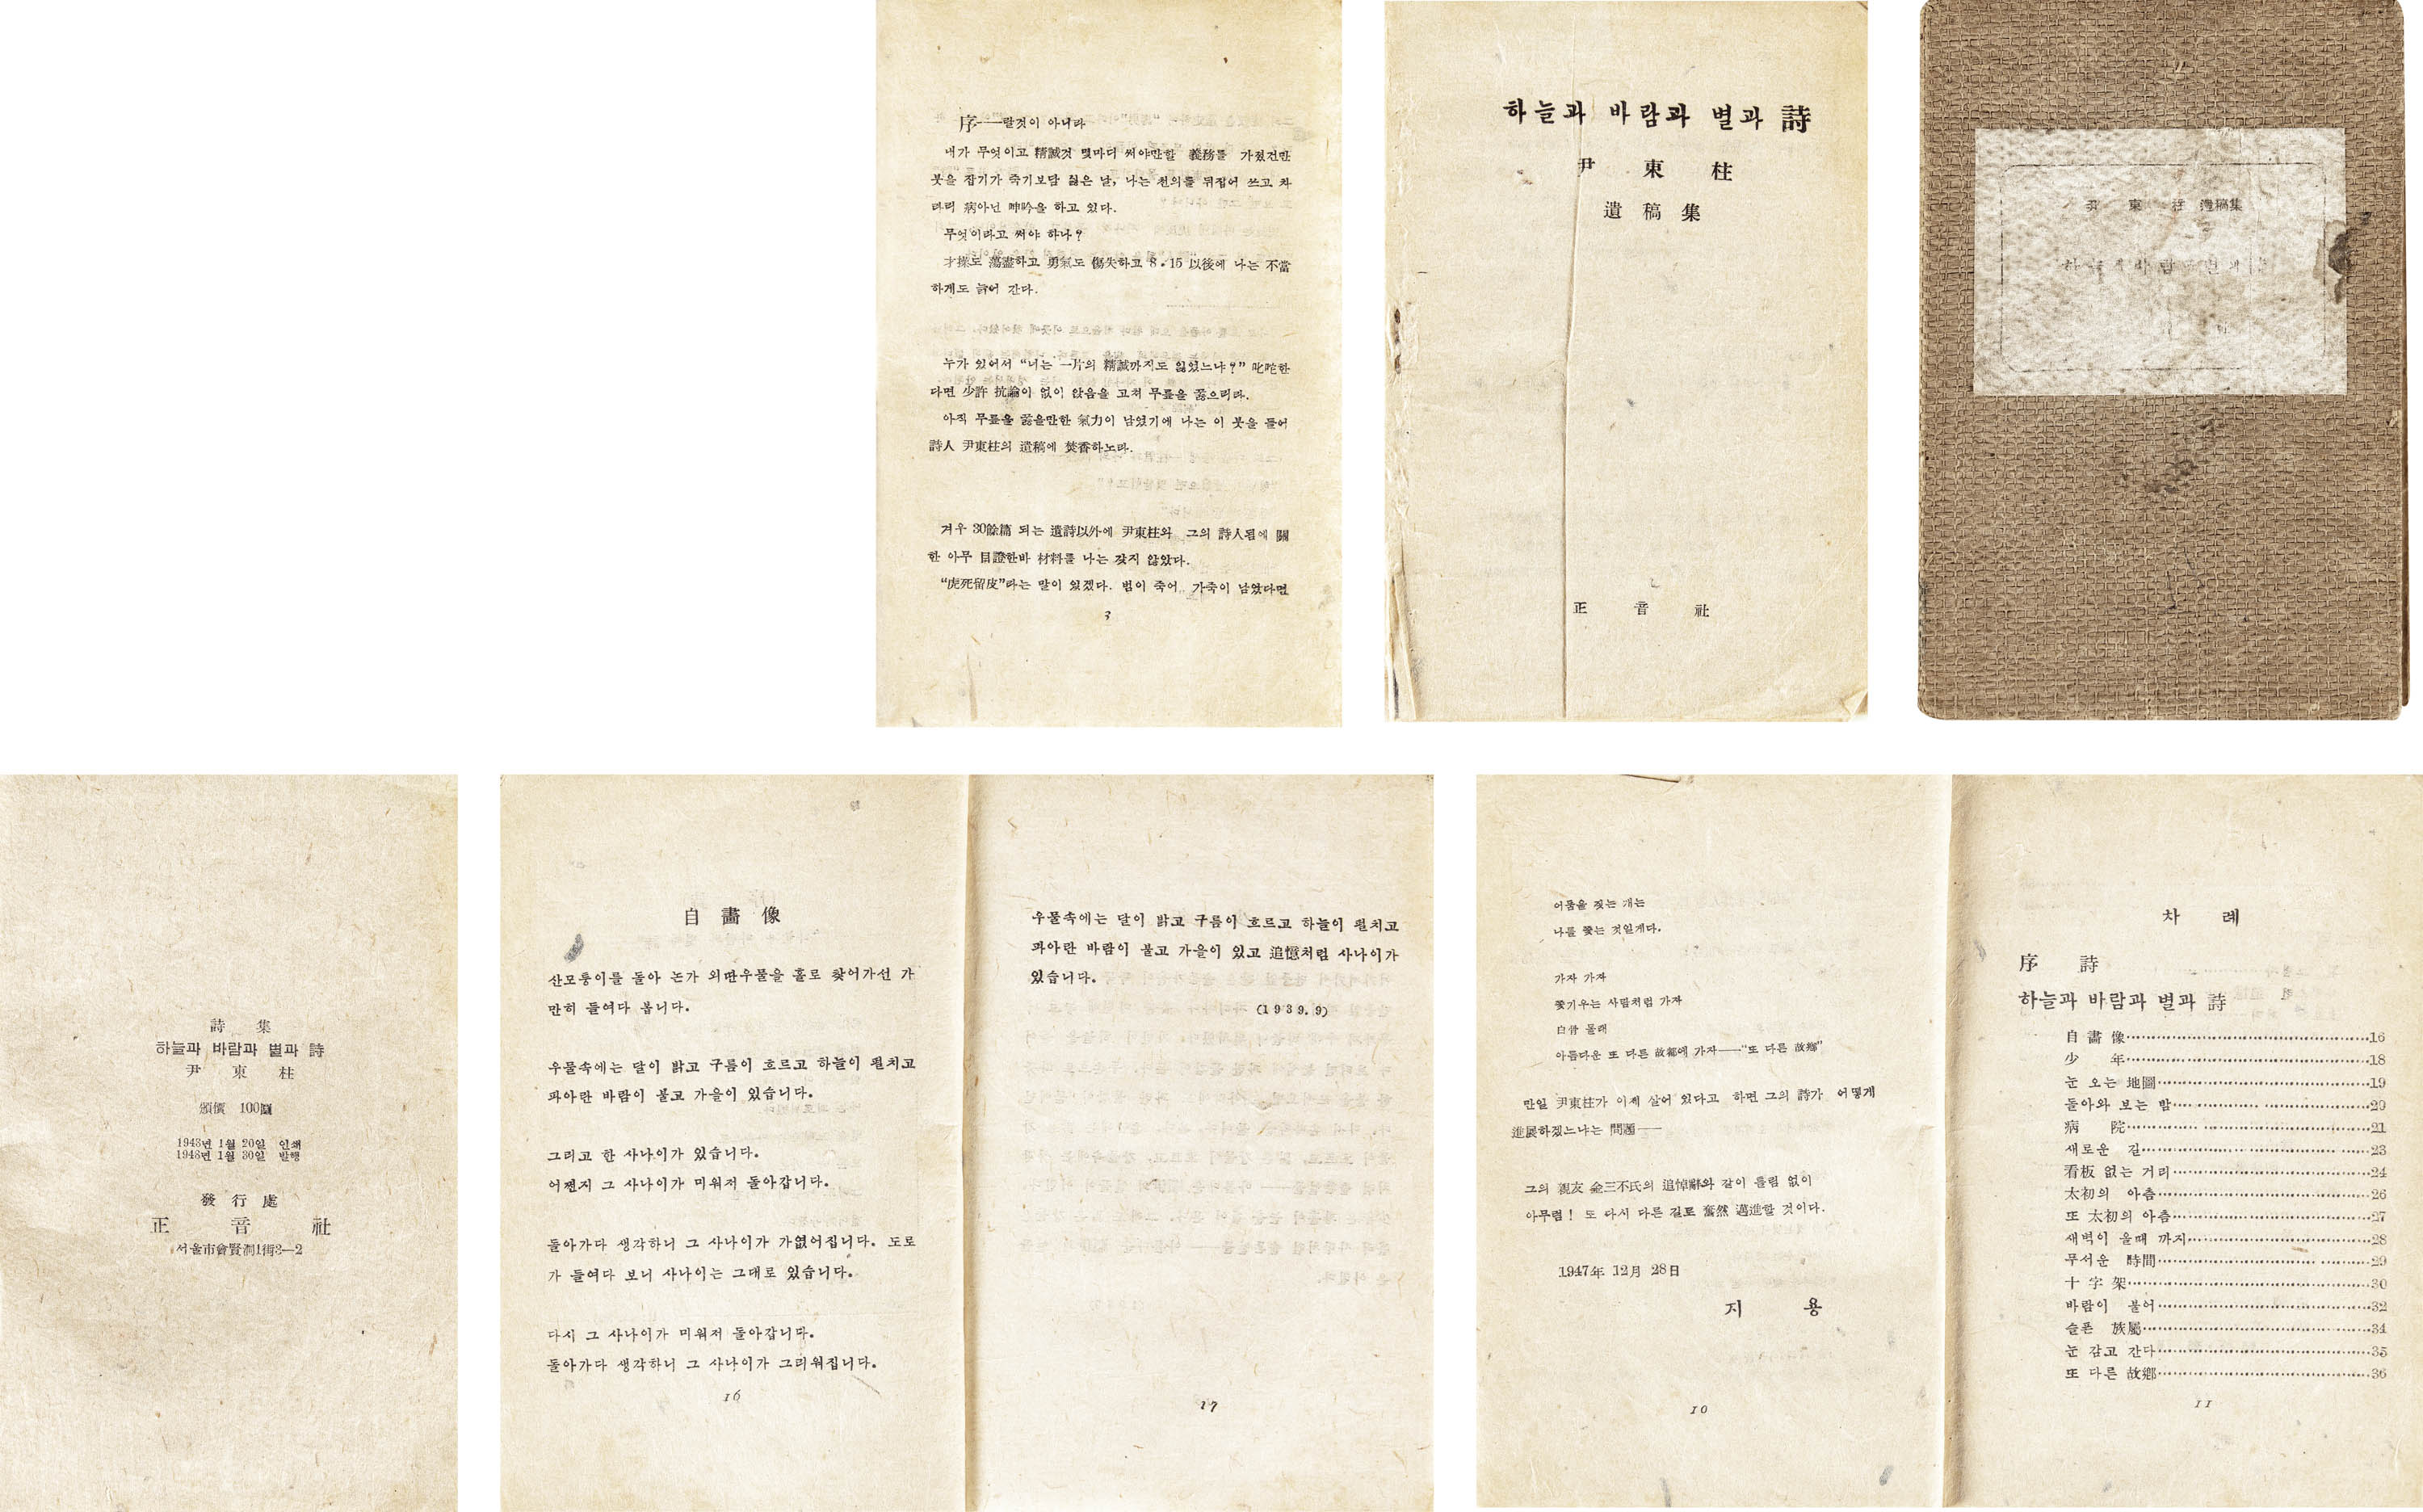 尹 東 柱 遺稿集
하늘과 바람과 별과 詩
하늘과 바람과 별과 詩
尹 東 柱
遺 稿 集
正 音 社
序——랄것이 아니라
내가 무엇이고 精誠것 몇마디 써야만할 義務를 가졌건만
붓을 잡기가 죽기보담 싫은 날, 나는 천의를 뒤집어 쓰고 차
라리 病아닌 呻吟을 하고 있다.
무엇이라고 써야 하나?
才操도 蕩盡하고 勇氣도 傷失하고 8·15 以後에 나는 不當
하게도 늙어 간다.
누가 있어서 “너는 一片의 精誠까지도 잃었느냐?” 叱咤한
다면 少許 抗論이 없이 앉음을 고쳐 무릎을 꿇으리라.
아직 무릎을 꿇을만한 氣力이 남었기에 나는 이 붓을 들어
詩人 尹東柱의 遺稿에 焚香하노라.
겨우 30餘篇 되는 遺詩以外에 尹東柱와 그의 詩人됨에 關
한 아무 目證한바 材料를 나는 갖지 않았다.
“虎死留皮”라는 말이 있겠다. 범이 죽어 가죽이 남았다면
3
어둠을 짖는 개는
나를 쫓는 것일게다.
가자 가자
쫓기우는 사람처럼 가자
白骨 몰래
아름다운 또 다른 故鄕에 가자——“또 다른 故鄕”
만일 尹東柱가 이제 살어 있다고 하면 그의 詩가 어떻게
進展하겠느냐는 問題——
그의 親友 金三不氏의 追悼辭와 같이 틀림 없이
아무렴! 또 다시 다른 길로 奮然 邁進할 것이다.
1947年 12月 28日
지 용
10
차 례
序 詩
하늘과 바람과 별과 詩
自 畵 像……16
少 年……18
눈 오는 地圖……19
돌아와 보는 밤……20
病 院……21
새로운 길……23
看板 없는 거리……24
太初의 아츰……26
또 太初의 아츰……27
새벽이 올때 까지……28
무서운 時間……29
十 字 架……30
바람이 불어……32
슬픈 族屬……34
눈 감고 간다……35
또 다른 故鄕……36
11
自 畵 像
산모퉁이를 돌아 논가 외딴우물을 홀로 찾어가선 가
만히 들여다 봅니다.
우물속에는 달이 밝고 구름이 흐르고 하늘이 펼치고
파아란 바람이 불고 가을이 있습니다.
그리고 한 사나이가 있습니다.
어쩐지 그 사나이가 미워져 돌아갑니다.
돌아가다 생각하니 그 사나이가 가엾어집니다. 도로
가 들여다 보니 사나이는 그대로 있습니다.
다시 그 사나이가 미워져 돌아갑니다.
돌아가다 생각하니 그 사나이가 그리워집니다.
16
우물속에는 달이 밝고 구름이 흐르고 하늘이 펼치고
파아란 바람이 불고 가을이 있고 追憶처럼 사나이가
있습니다.
(1939.9)
17
詩 集
하늘과 바람과 별과 詩
尹 東 柱
頒價 100圓
1948년 1월 20일 인쇄
1948년 1월 30일 발행
發 行 處
正 音 社
서울市會賢洞1街3—2